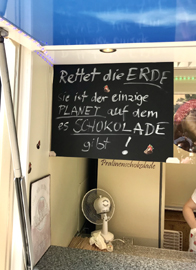 Rettet die ERDE
sie ist der einzige
PLANET auf dem
es SCHOKOLADE
gibt !
Pralinenschokolade